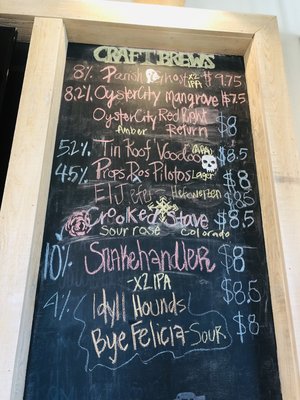 CRAFT BREWS
8% Parish Ghost x2 IPA $9.75
8.2% OysterCity mangrove $7.5
OysterCity Red Right
Amber Return $8
5.2% Tin Roof Voodoo (APA) $8.5
4.5% Props Pilots Lager $8
Hefeweizen $8.5
Crooked Stave $8.5
Sour rosé Colorado
10% Snakehandler $8
-x2 IPA
4% Idyll Hounds $8.5
Bye Felicia-Sour $8